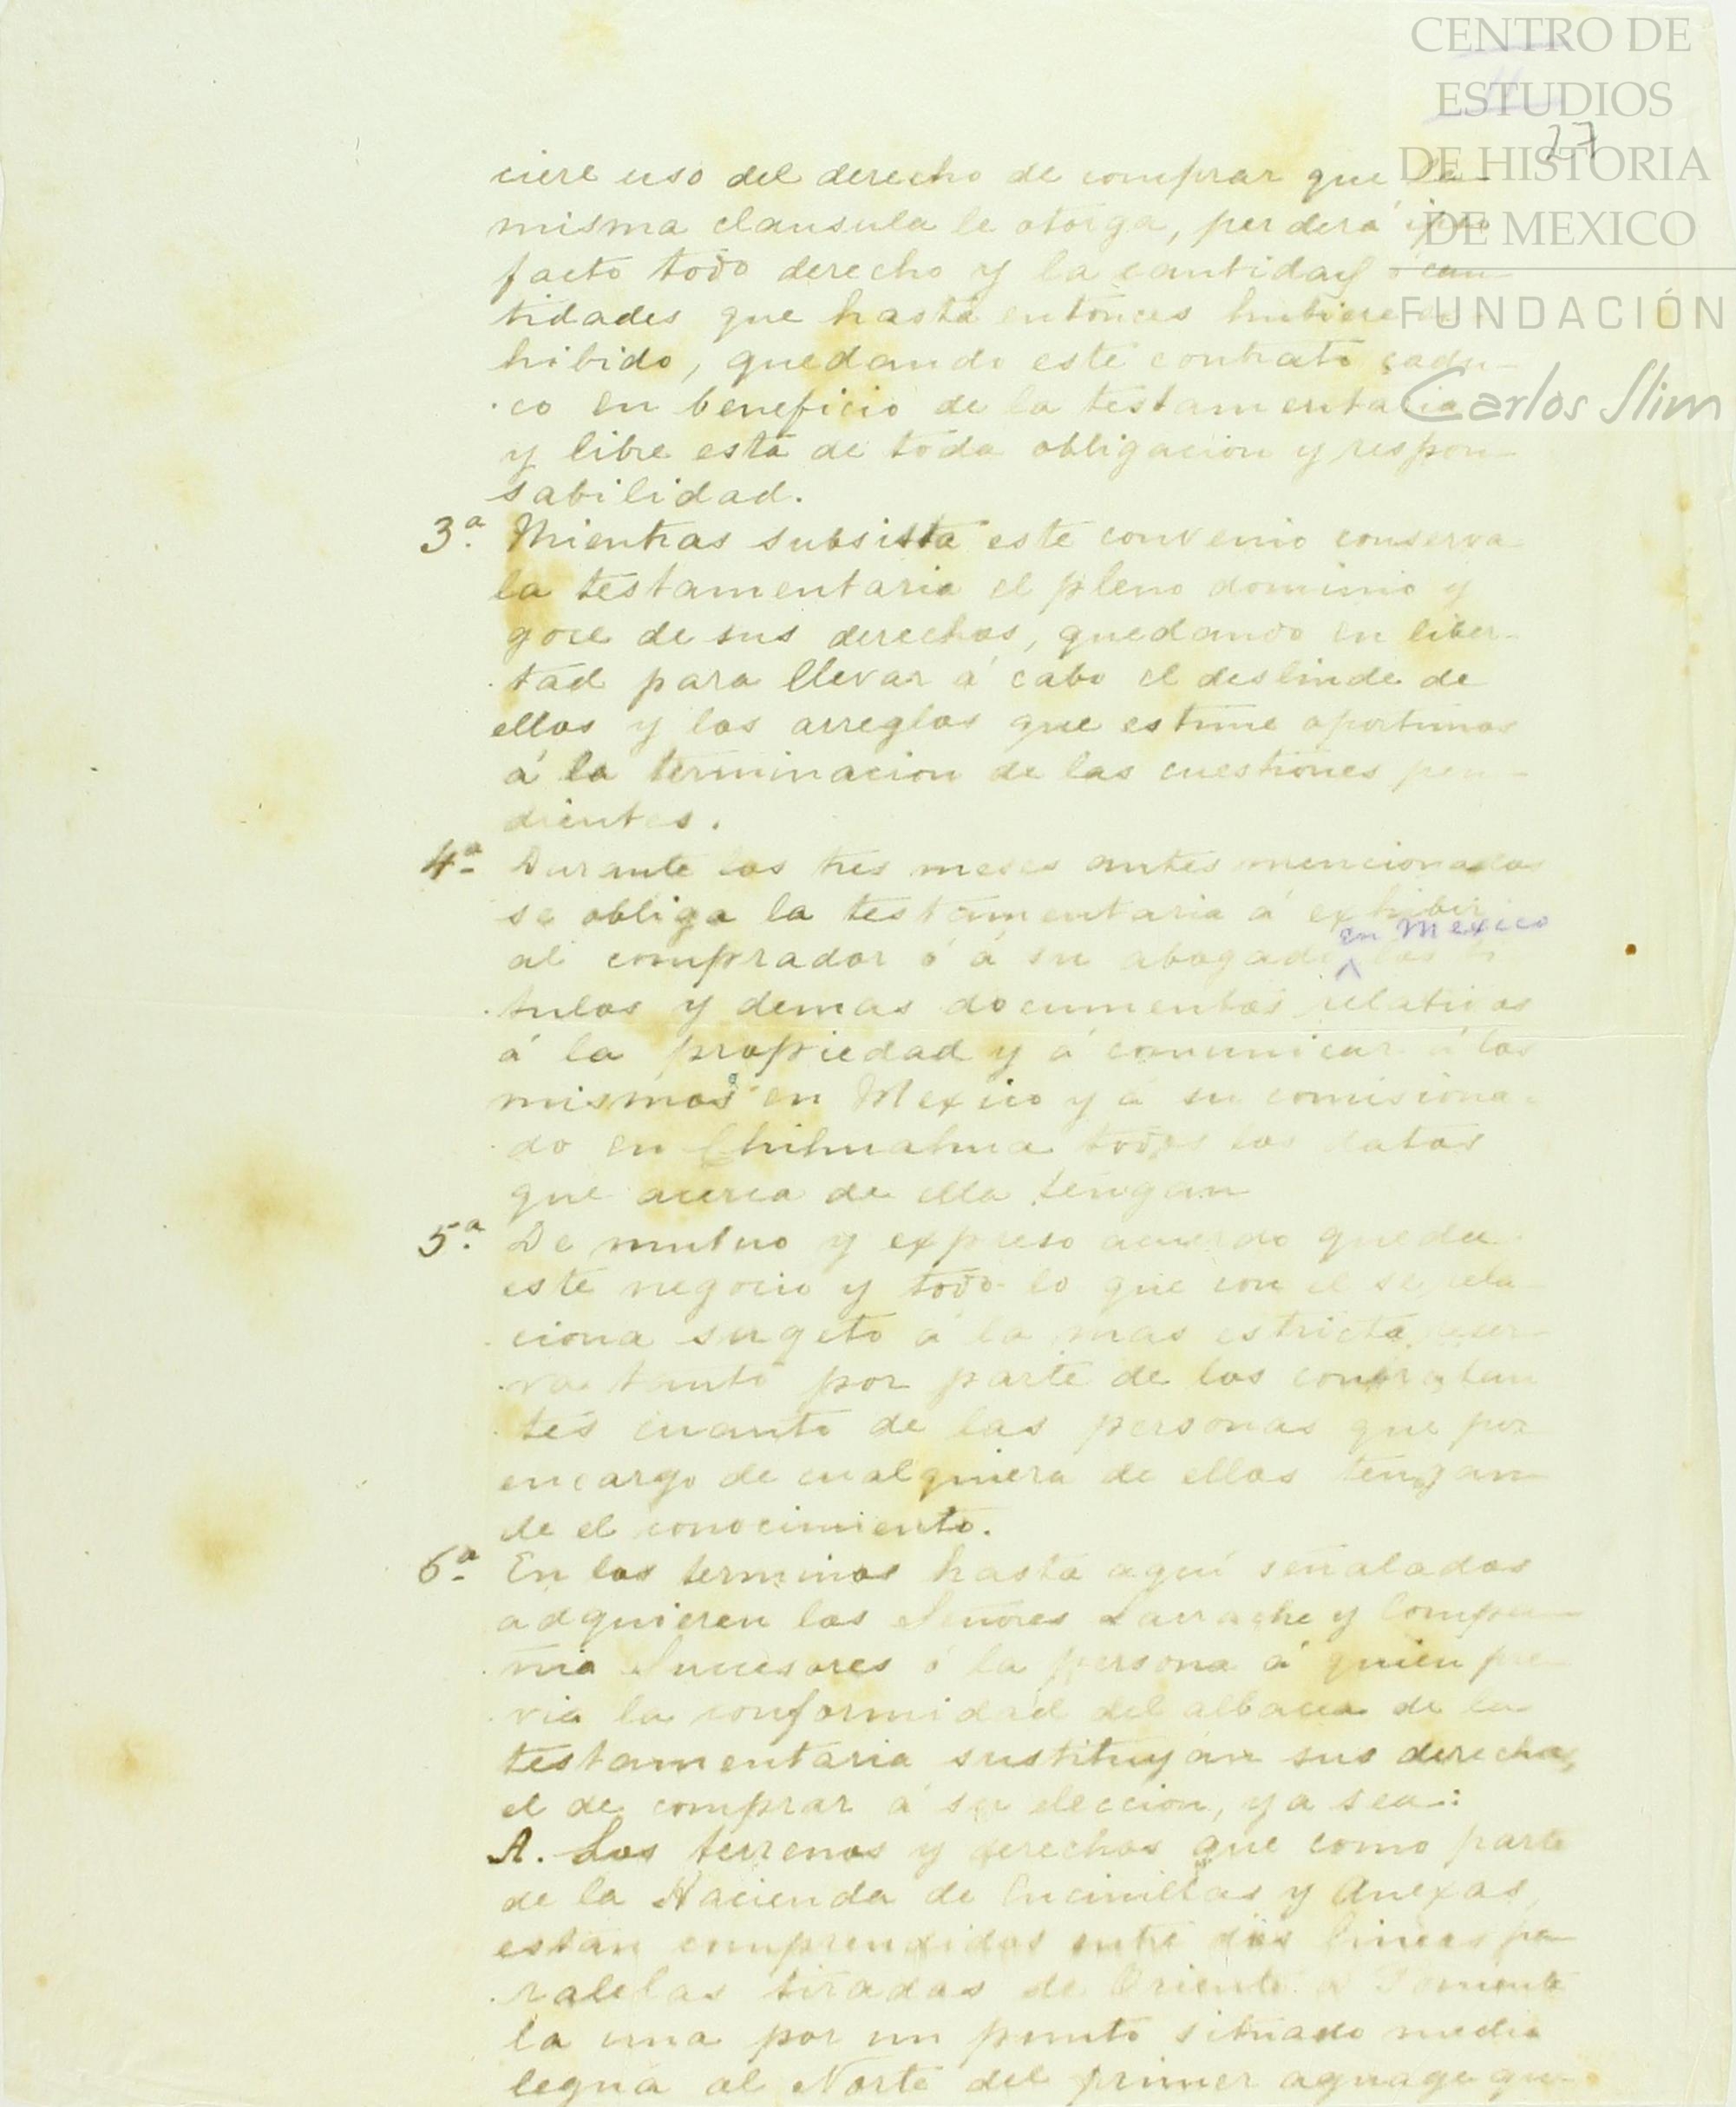 CENTRO DE
ESTUDIOS
DE HISTORIA
DE MEXICO
FUNDACIÓN
Carlos Slim
27
ciere uso del derecho de comprar que la
misma clausula le otorga, perderá ipso
facto todo derecho y la cantidad ó can
tidades que hasta entónces hubiere
hibido, quedando este contrato cadu-
co en beneficio de la testamentaria
y libre esta de toda obligacion y respon-
sabilidad.
3.ª Mientras subsista este convenio conserva
la testamentaria el pleno dominio y
goce de sus derechos, quedando en liber-
tad para llevar á cabo el deslinde de
ellos y los arreglos que estime oportunos
á la terminacion de las cuestiones pen-
dientes.
4.ª Durante los tres meses antes mencionados
se obliga la testamentaria á exhibir
en Mexico
al comprador ó á su abogado los ti
tulos y demas documentos relativos
á la propiedad y á comunicar á los
mismos en Mexico y á su comisiona-
do en Chihuahua todos los datos
que acerca de ella tengan
5.ª De mutuo y expreso acuerdo queda
este negocio y todo lo que con el se rela
ciona sugeto á la mas estricta reser-
va tanto por parte de los contratan
tes cuanto de las personas que por
encargo de cualquiera de ellos tengan
de el conocimiento.
6.ª En los terminos hasta aqui señalados
adquieren los Señores Larrache y Compa-
ñia Succesores ó la persona á quien pre
via la conformidad del albacea de la
testamentaria sustituyan sus derechos,
el de comprar á su eleccion, ya sea:
A. Los terrenos y derechos que como parte
de la Hacienda de Encinillas y Anexas,
estan comprendidos entre dos lineas pa
ralelas tiradas de Oriente á Poniente
la una por un punto situado media
legua al Norte del primer aguage que